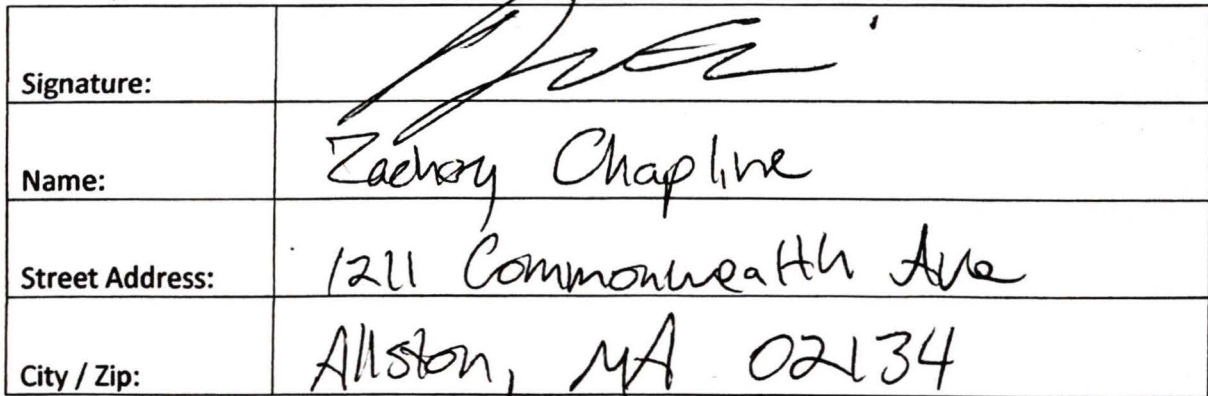 Signature:
Name: Zachory Chapline
Street Address: 1211 Commonwealth Ave
City / Zip: Allston, MA 02134